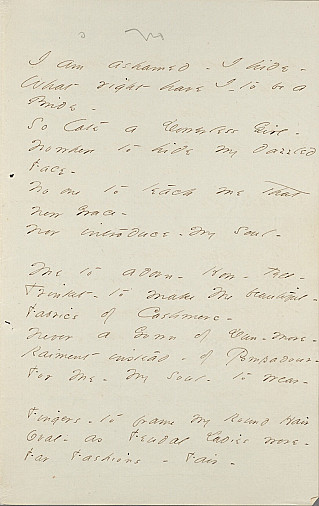 I am ashamed - I hide -
What right have I - to be a
Bride -
So late a Dowerless Girl -
Nowhere to hide my dazzled
Face -
No one to teach me that
new Grace -
Nor introduce - my Soul -
Me to adorn - How - tell -
Trinket - to make Me beautiful -
Fabrics of Cashmere -
Never a Gown of Dun - more -
Raiment instead - of Pompadour -
For Me - My soul - to wear -
Fingers - to frame my Round Hair
Oval - as Feudal Ladies wore -
Far Fashions - Fair -